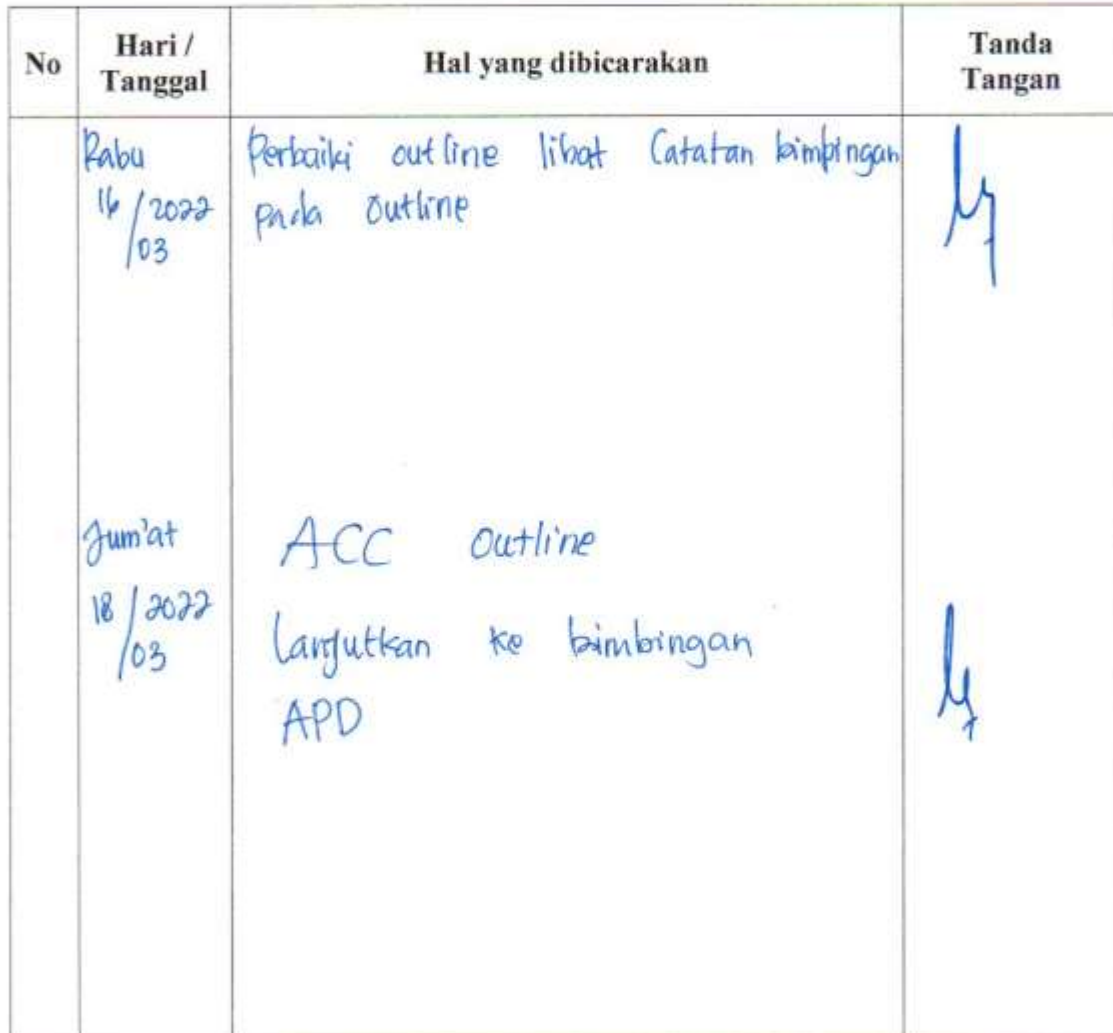 No
Hari / Tanggal
Hal yang dibicarakan
Tanda Tangan
Rabu
16/03 2022
Perbaiki outline lihat Catatan bimbingan
pada Outline
Jum'at
18/03 2022
ACC Outline
Lanjutkan ke bimbingan
APD